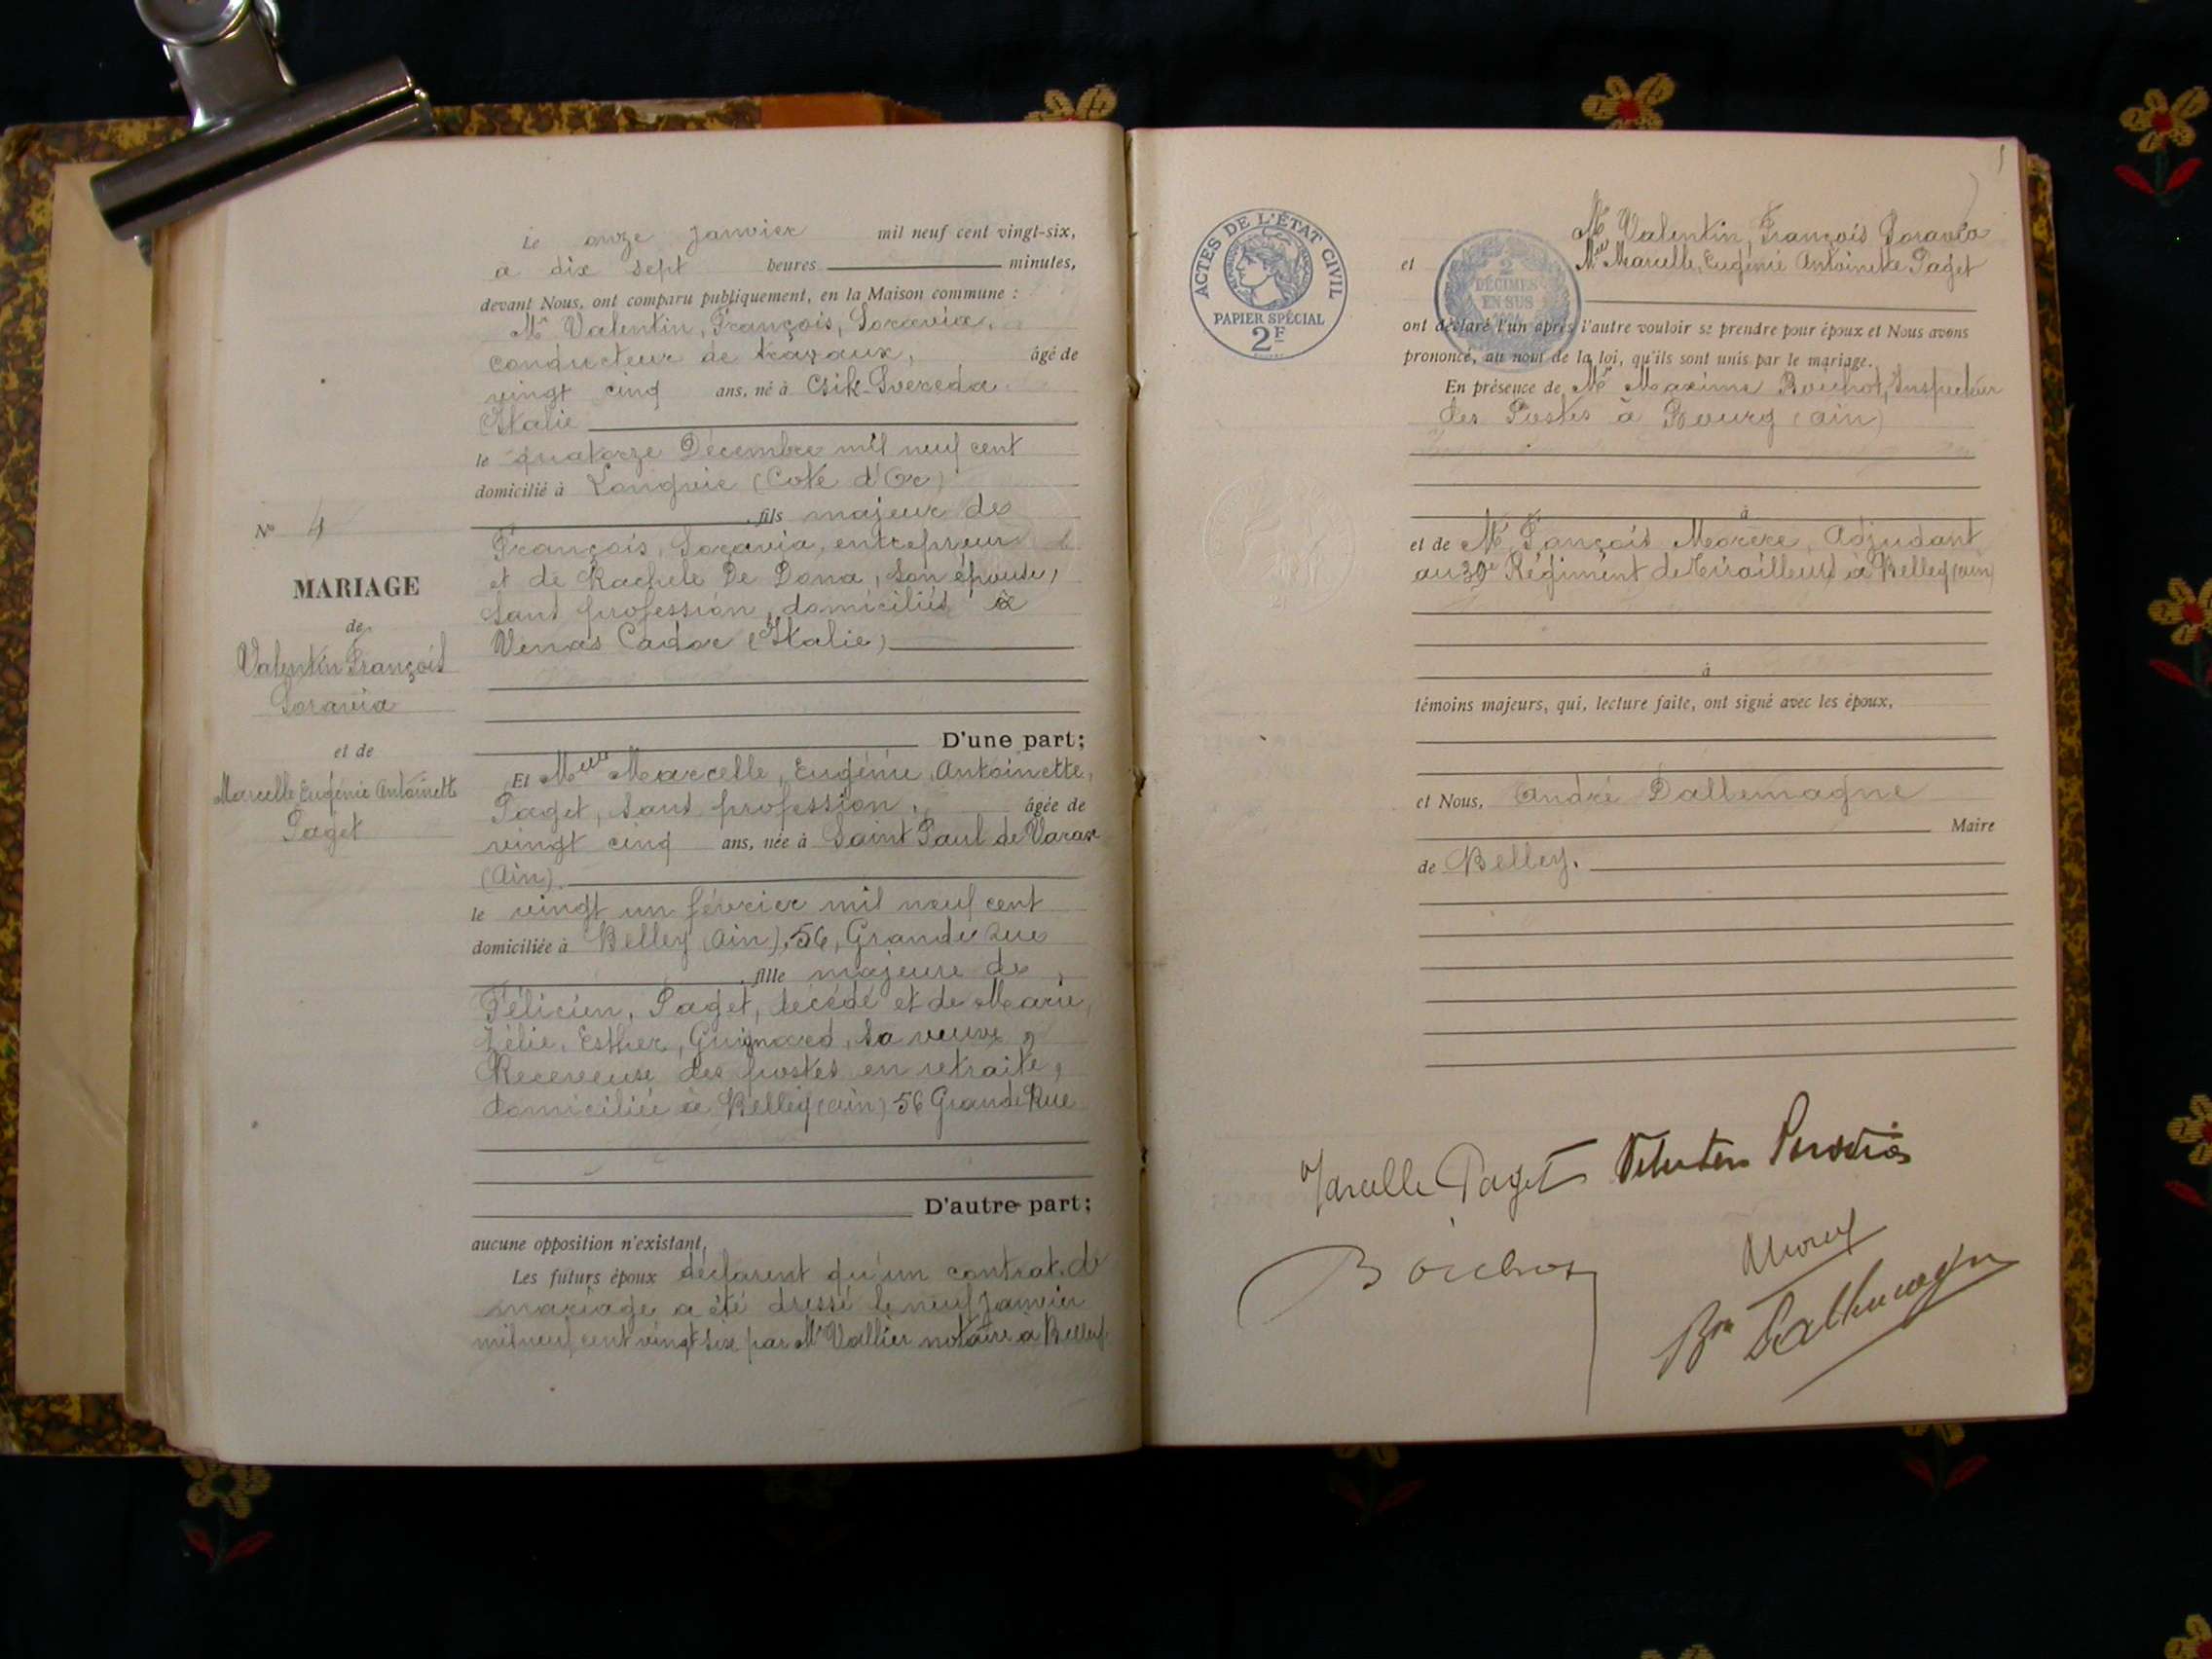 Le onze Janvier mil neuf cent vingt-six,
a dix sept heures minutes,
devant Nous, ont comparu publiquement, en la Maison commune :
Mr Valentin, François, Soravia,
conducteur de travaux, âgé de
vingt cinq ans, né à Csik-Svereda
(Italie
le quatorze Décembre mil neuf cent
domicilié à Longvic (Cote d'Or)
, fils majeur de
François, Soravia, entrepreneur
et de Rachele De Dona, son épouse,
sans profession, domiciliés à
Venas Cador (Italie)
D'une part;
Nº 4
MARIAGE
de
Valentin François
Soravia
et de
Marcelle Eugénie Antoinette
Paget
Et Melle Marcelle, Eugénie, Antoinette,
Paget, sans profession, âgée de
vingt cinq ans, née à Saint Paul de Varax
(Ain).
le vingt un février mil neuf cent
domiciliée à Belley (Ain), 56, Grande Rue
, fille majeure de
Félicien, Paget, décédé et de Marie,
Zélie, Esther, Guignard, sa veuve,
Receveuse des postes en retraite,
domiciliée à Belley (ain) 56 Grande Rue
D'autre part;
aucune opposition n'existant,
Les futurs époux déclarent qu'un contrat de
mariage a été dressé le neuf Janvier
mil neuf cent vingt six par Me Vallier notaire à Belley
ACTES DE L'ÉTAT CIVIL
PAPIER SPÉCIAL
2F
2
DÉCIMES
EN SUS
Mr Valentin, François Soravia
et Melle Marcelle, Eugénie Antoinette Paget
ont déclaré l'un après l'autre vouloir se prendre pour époux et Nous avons
prononcé, au nom de la loi, qu'ils sont unis par le mariage.
En présence de Mr Maxime Boichot, Inspecteur
des Postes à Bourg (ain)
à
et de Mr Fançois Morere, Adjudant
au 30e Régiment de Tirailleurs à Belley (ain)
à
témoins majeurs, qui, lecture faite, ont signé avec les époux,
et Nous, André Dallemagne
Maire
de Belley.
Marcelle Paget Valentin Soravia
Boichot
Bon Dallemagne